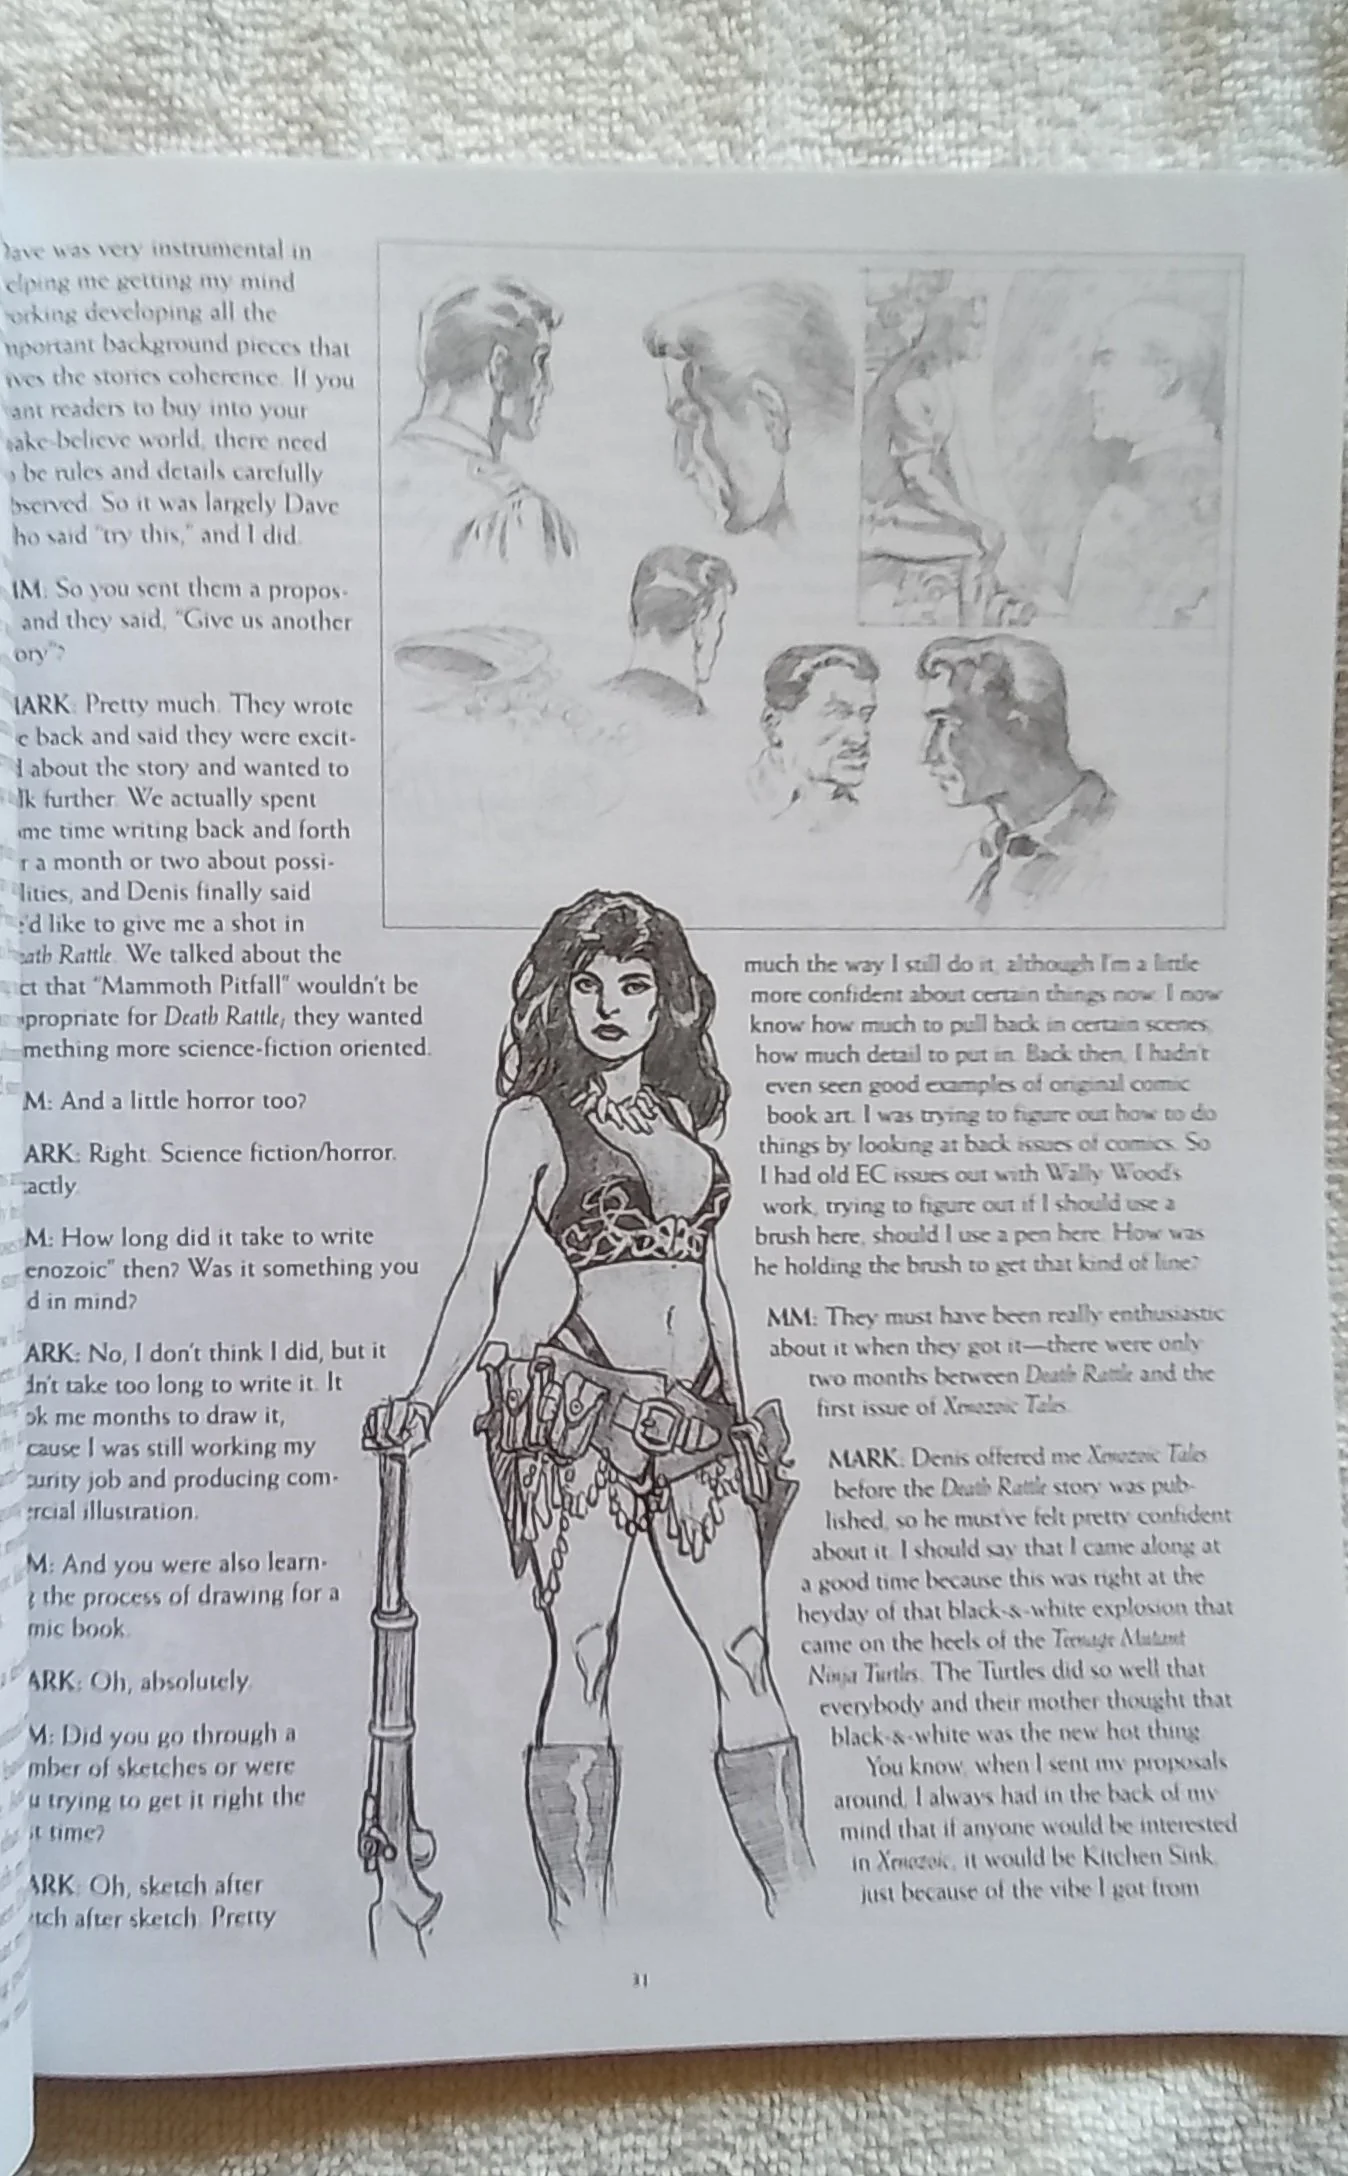 ave was very instrumental in
elping me getting my mind
orking developing all the
mportant background pieces that
ives the stories coherence. If you
ant readers to buy into your
ake-believe world, there need
be rules and details carefully
bserved. So it was largely Dave
ho said "try this," and I did.
IM: So you sent them a propos-
and they said, "Give us another
ory"?
IARK: Pretty much. They wrote
e back and said they were excit-
d about the story and wanted to
lk further. We actually spent
me time writing back and forth
r a month or two about possi-
lities, and Denis finally said
'd like to give me a shot in
eath Rattle. We talked about the
ct that "Mammoth Pitfall" wouldn't be
propriate for Death Rattle; they wanted
mething more science-fiction oriented.
M: And a little horror too?
ARK: Right. Science fiction/horror.
actly.
M: How long did it take to write
enozoic" then? Was it something you
d in mind?
ARK: No, I don't think I did, but it
dn't take too long to write it. It
ok me months to draw it,
cause I was still working my
curity job and producing com-
ercial illustration.
M: And you were also learn-
g the process of drawing for a
mic book.
ARK: Oh, absolutely.
M: Did you go through a
mber of sketches or were
u trying to get it right the
st time?
ARK: Oh, sketch after
etch after sketch. Pretty
much the way I still do it, although I'm a little
more confident about certain things now. I now
know how much to pull back in certain scenes,
how much detail to put in. Back then, I hadn't
even seen good examples of original comic
book art. I was trying to figure out how to do
things by looking at back issues of comics. So
I had old EC issues out with Wally Wood's
work, trying to figure out if I should use a
brush here, should I use a pen here. How was
he holding the brush to get that kind of line?
MM: They must have been really enthusiastic
about it when they got it—there were only
two months between Death Rattle and the
first issue of Xenozoic Tales.
MARK: Denis offered me Xenozoic Tales
before the Death Rattle story was pub-
lished, so he must've felt pretty confident
about it. I should say that I came along at
a good time because this was right at the
heyday of that black-&-white explosion that
came on the heels of the Teenage Mutant
Ninja Turtles. The Turtles did so well that
everybody and their mother thought that
black-&-white was the new hot thing.
You know, when I sent my proposals
around, I always had in the back of my
mind that if anyone would be interested
in Xenozoic, it would be Kitchen Sink,
just because of the vibe I got from
31